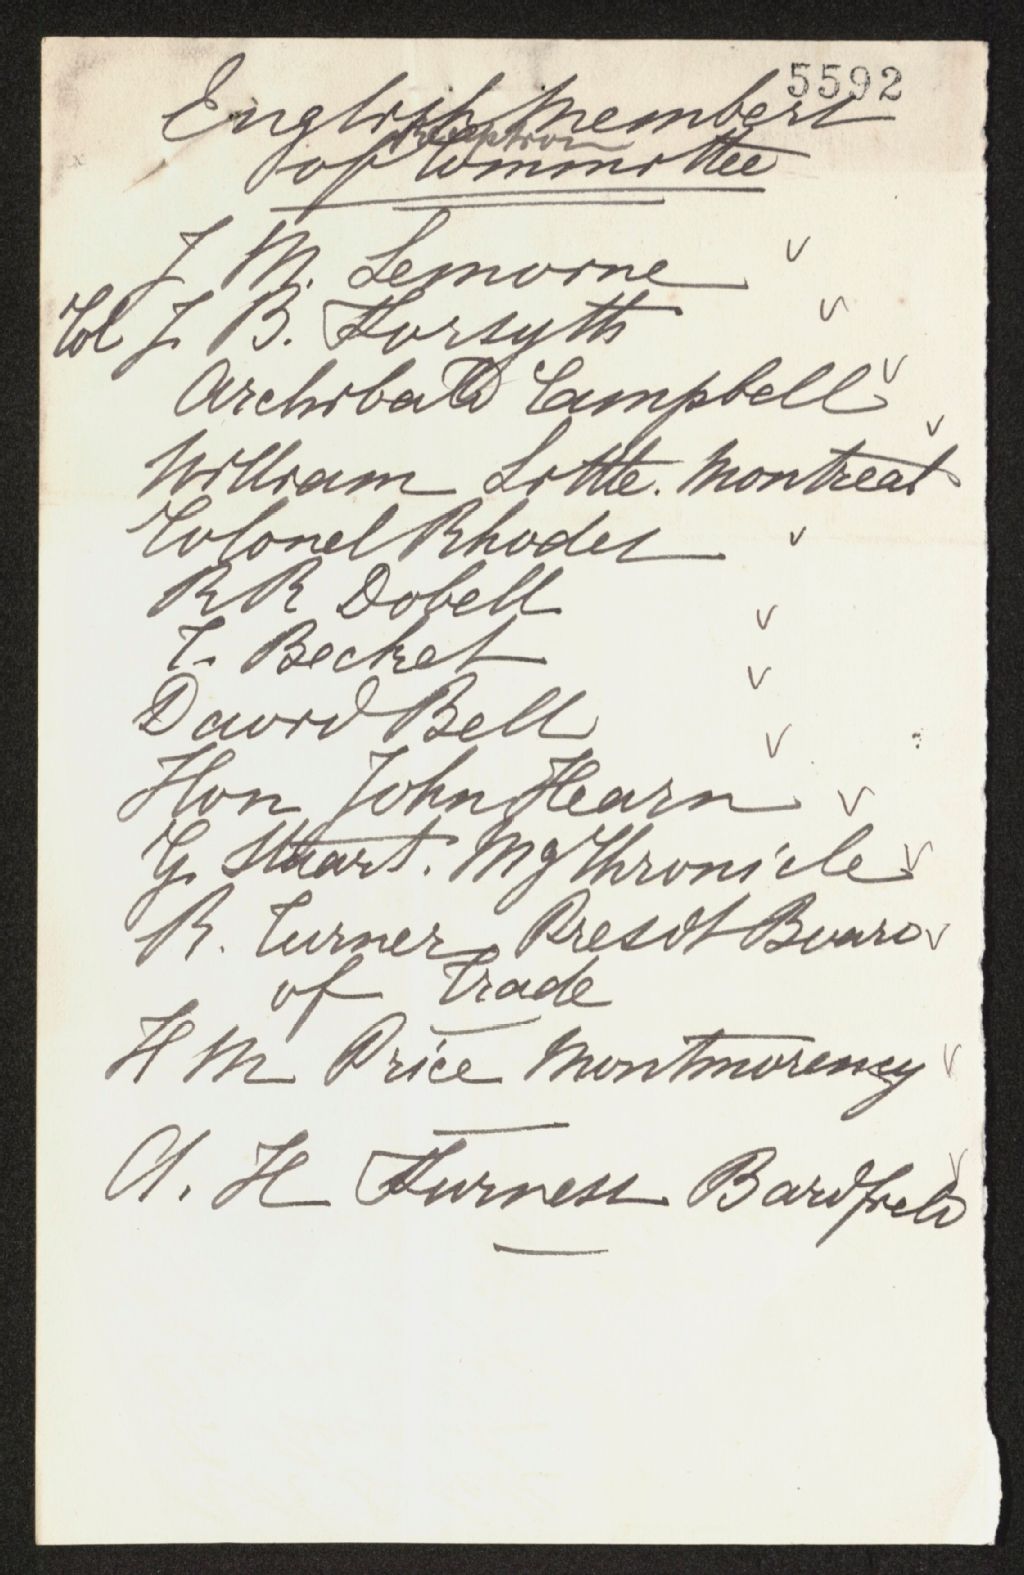 5592
English Members
Reception
of Committee
J M. Lemoine
Col J. B. Forsyth
Archibald Campbell
William Little. Montreal
Colonel Rhodes
R R Dobell
T. Becket
David Bell
Hon John Hearn
G. Stuart. Mg Chronicle
R. Turner Presdt Board
of Trade
H M Price Montmorency
A. H Furness Bardfield